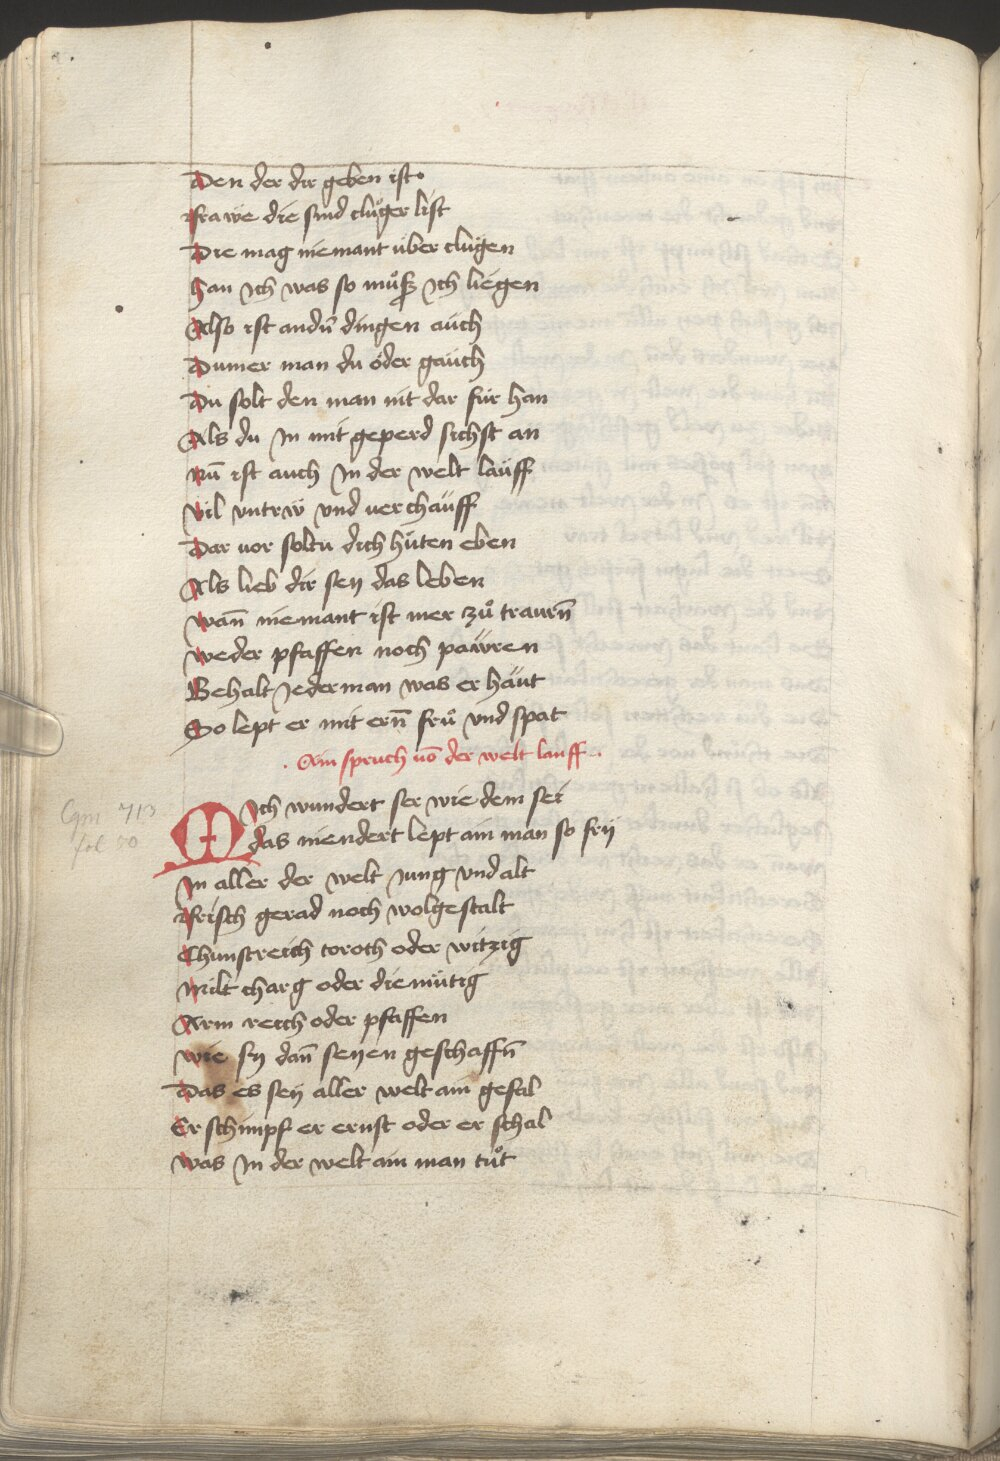 Den der dir geben ist
frawe die sind clůger list
Die mag niemant über clügen
han ich was so můsz ich liegen
Also ist andn̄ dingen auch
Dumer man du öder gäuch
Du solt den man nit dar für han
Als du In mit geperd sichst an
nū ist auch In der welt läuff
vil vntrẅ vnd verchäuff
Dar vor soltu dich hůten eben
Als lieb dir seÿ das leben
wan̄ niemant ist mer zů trawrn̄
weder pfaffen noch päwren
Behalt Jederman was er häut
So lept er mit ern̄ frů vnd spat
. Ain spruch vō der welt lauff .
Mich wundert ser wie dem sei
das niendert lept ain man so frÿ
In aller der welt Jung vnd alt
frisch gerad noch wolgestalt
Chunstreich toroth oder witzig
milt charg oder diemütig
Cgm 713
fol 50
Arm reich oder pfaffen
wie sy dan̄ seyen geschaffn̄
Das es seÿ aller welt ain gefal
Er schimpf er ernst oder er schal
was In der welt ain man tůt